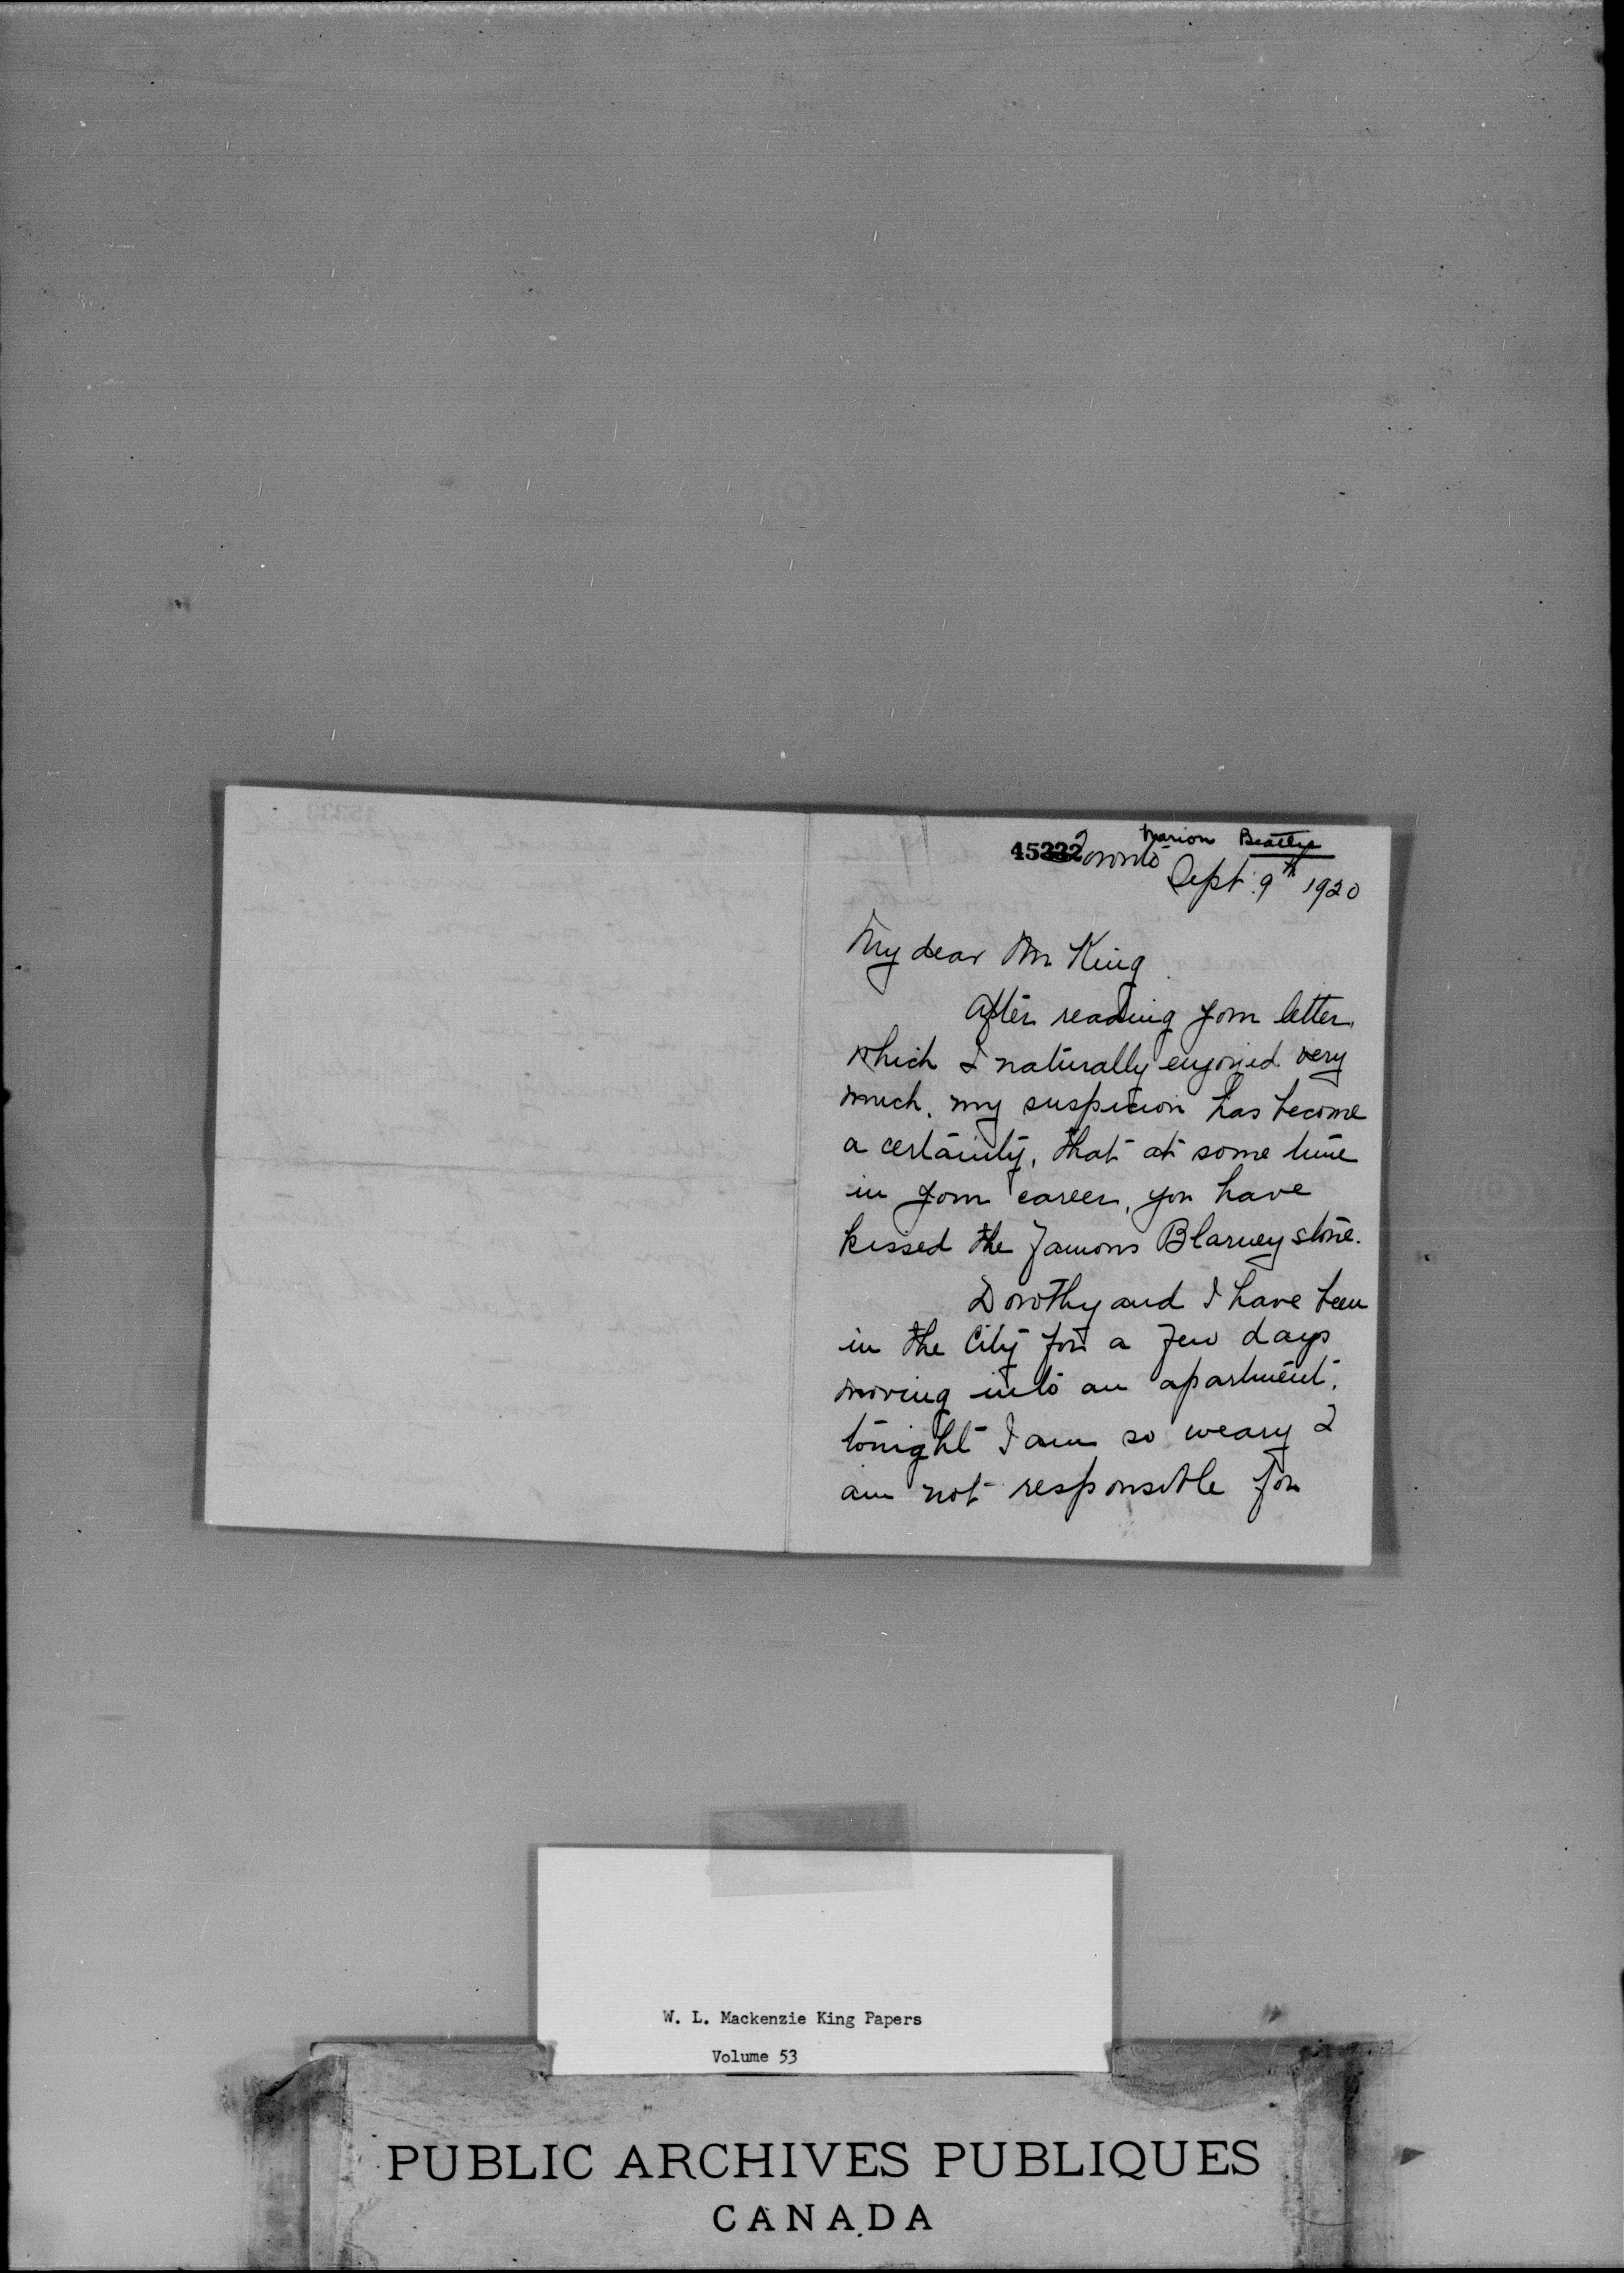 Marion Beattie
45332
Toronto
Sept. 9th 1920
My dear Mr King
After reading your letter,
which I naturally enjoyed very
much, my suspicion has become
a certainty, that at some time
in your career, you have
kissed the famous Blarney stone.
Dorothy and I have been
in the City for a few days
moving into an apartment,
tonight I am so weary I
am not responsible for
W. L. Mackenzie King Papers
Volume 53
PUBLIC ARCHIVES PUBLIQUES
CANADA